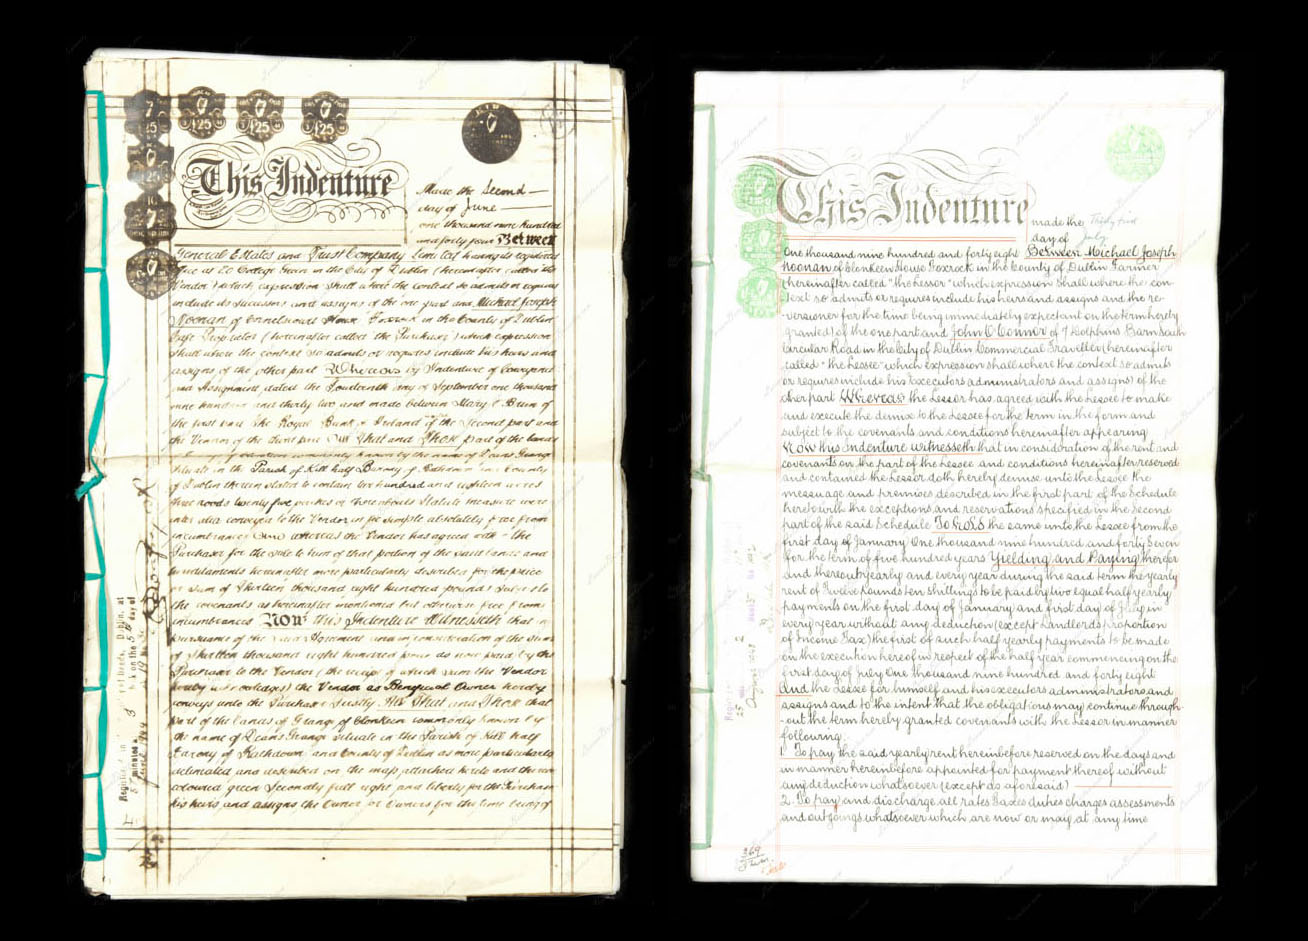 £25
£25
£25
This Indenture
Made the Second
day of June
one thousand nine hundred
and forty four Between
General Estates and Trust Company Limited having its registered
Office at College Green in the City of Dublin (hereinafter called the
Vendor) which expression shall where the context so admits or requires
include its successors and assigns of the one part and Michael Joseph
Noonan of House Foxrock in the County of Dublin
(hereinafter called the Purchaser) which expression
shall where the context so admits or requires include his heirs and
assigns of the other part Whereas by Indenture of Conveyance
and Assignment dated the Fourteenth day of September one thousand
nine hundred and thirty two and made between Mary E of
the first part The Royal Bank of Ireland of the Second part and
the Vendor of the Third part All That and Those part of the lands
commonly known by the name of Deans Grange
Situate in the Parish of Kill half Barony of Rathdown and County
of Dublin therein stated to contain two hundred and eighteen acres
three roods twenty five perches or thereabouts Statute measure were
inter alia conveyed to the Vendor in fee simple absolutely free from
incumbrances And whereas the Vendor has agreed with the
Purchaser for the sale to him of that portion of the said lands and
hereditaments hereinafter more particularly described for the price
or sum of thousand eight hundred pounds Subject to
the covenants as hereinafter mentioned but otherwise free from
incumbrances Now this Indenture Witnesseth that in
pursuance of the said Agreement and in consideration of the sum
of thousand eight hundred pounds now paid by the
Purchaser to the Vendor (the receipt of which sum the Vendor
hereby acknowledges) the Vendor as Beneficial Owner hereby
conveys unto the Purchaser Firstly All That and Those that
part of the lands of Grange of Clonkeen commonly known by
the name of Deans Grange situate in the Parish of Kill half
Barony of Rathdown and County of Dublin as more particularly
delineated and described on the map attached hereto and thereon
coloured green Secondly full right and liberty for the Purchaser
his heirs and assigns the Owner or Owners for the time being of
This Indenture
made the Thirty first
day of July
One thousand nine hundred and forty eight Between Michael Joseph
Noonan of Clonkeen House Foxrock in the County of Dublin Farmer
(hereinafter called "the Lessor" which expression shall where the con-
-text so admits or requires include his heirs and assigns and the re-
versioner for the time being immediately expectant on the term hereby
granted) of the one part and John O'Connor of 7 Dolphins Barn South
Circular Road in the City of Dublin Commercial Traveller (hereinafter
called "the Lessee" which expression shall where the context so admits
or requires include his Executors administrators and assigns) of the
other part Whereas the Lessor has agreed with the Lessee to make
and execute the demise to the Lessee for the term in the form and
subject to the covenants and conditions hereinafter appearing
Now this Indenture witnesseth that in consideration of the rent and
covenants on the part of the Lessee and conditions hereinafter reserved
and contained the Lessor doth hereby demise unto the Lessee the
message and premises described in the first part of the Schedule
hereto with the exceptions and reservations specified in the Second
part of the said Schedule To Hold the same unto the Lessee from the
first day of January One thousand nine hundred and forty seven
for the term of five hundred years Yielding and Paying therefor
and thereout yearly and every year during the said term the yearly
rent of Twelve Pounds ten shillings to be paid by two equal half yearly
payments on the first day of January and first day of July in
every year without any deduction (except Landlords proportion
of Income Tax) the first of such half yearly payments to be made
on the execution hereof in respect of the half year commencing on the
first day of July One thousand nine hundred and forty eight
And the Lessee for himself and his executors administrators and
assigns and to the intent that the obligations may continue through-
-out the term hereby granted covenants with the Lessor in manner
following:
1. To pay the said yearly rent hereinbefore reserved on the days and
in manner hereinbefore appointed for payment thereof without
any deduction whatsoever (except as aforesaid)
2. To pay and discharge all rates Taxes duties charges assessments
and outgoings whatsoever which are now or may at any time